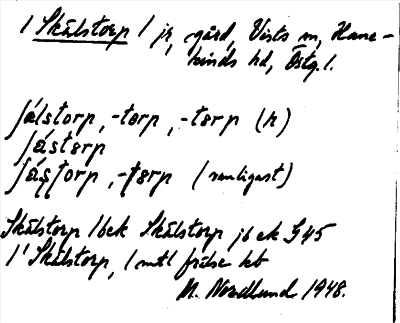 1 Skålstorp 1 jr, gård, Vists sn, Hane-
kinds hd, Östg. l.
ʃålstorp, -torp, -tɘrp (h)
ʃåstɘrp
ʃåstorp, -tɘrp (vanligast)
Skålstorp 1bek Skålstorp jb ek G45
1' Skålstorp, 1 mtl frälse kb
N. Nordlund 1948.